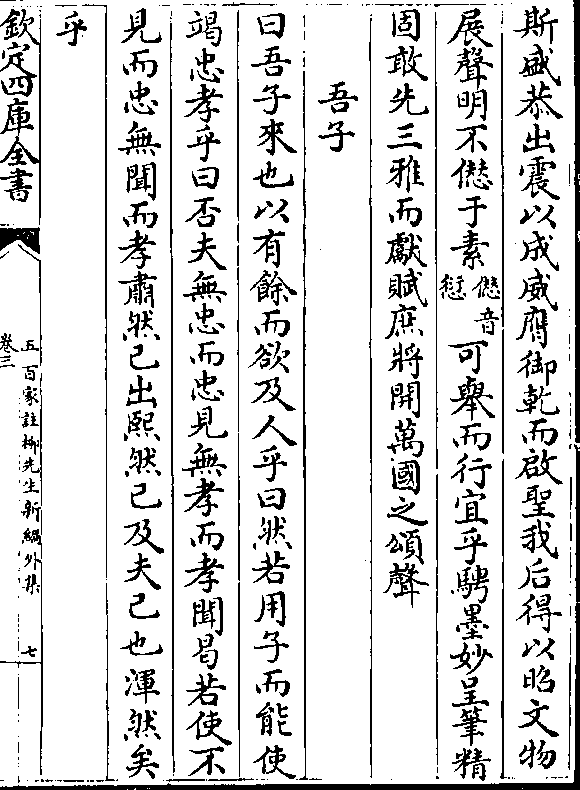 斯盛恭出震以成威膺御乾而啟聖我后得以昭文物
展聲明不僁于素僁音愆可舉而行宜乎騁墨妙呈筆精
固敢先三雅而獻賦庶將開萬國之頌聲
吾子
曰吾子來也以有餘而欲及人乎曰然若用子而能使
竭忠孝乎曰否夫無忠而忠見無孝而孝聞曷若使不
見而忠無聞而孝肅然已出熙然已及夫已也渾然矣
乎
欽定四庫全書
卷三
五百家註柳先生新編外集
七